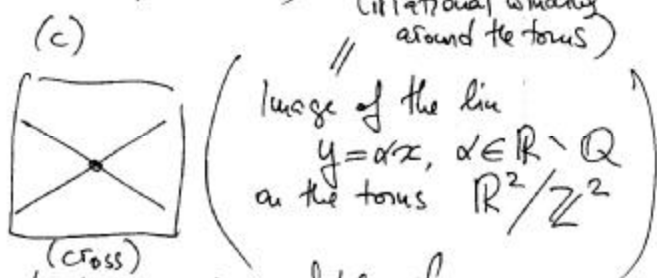 (irrational winding
around the torus)
(c)
Image of the line
y = αx, α ∈ ℝ \ ℚ
on the torus ℝ²/ℤ²
(cross)